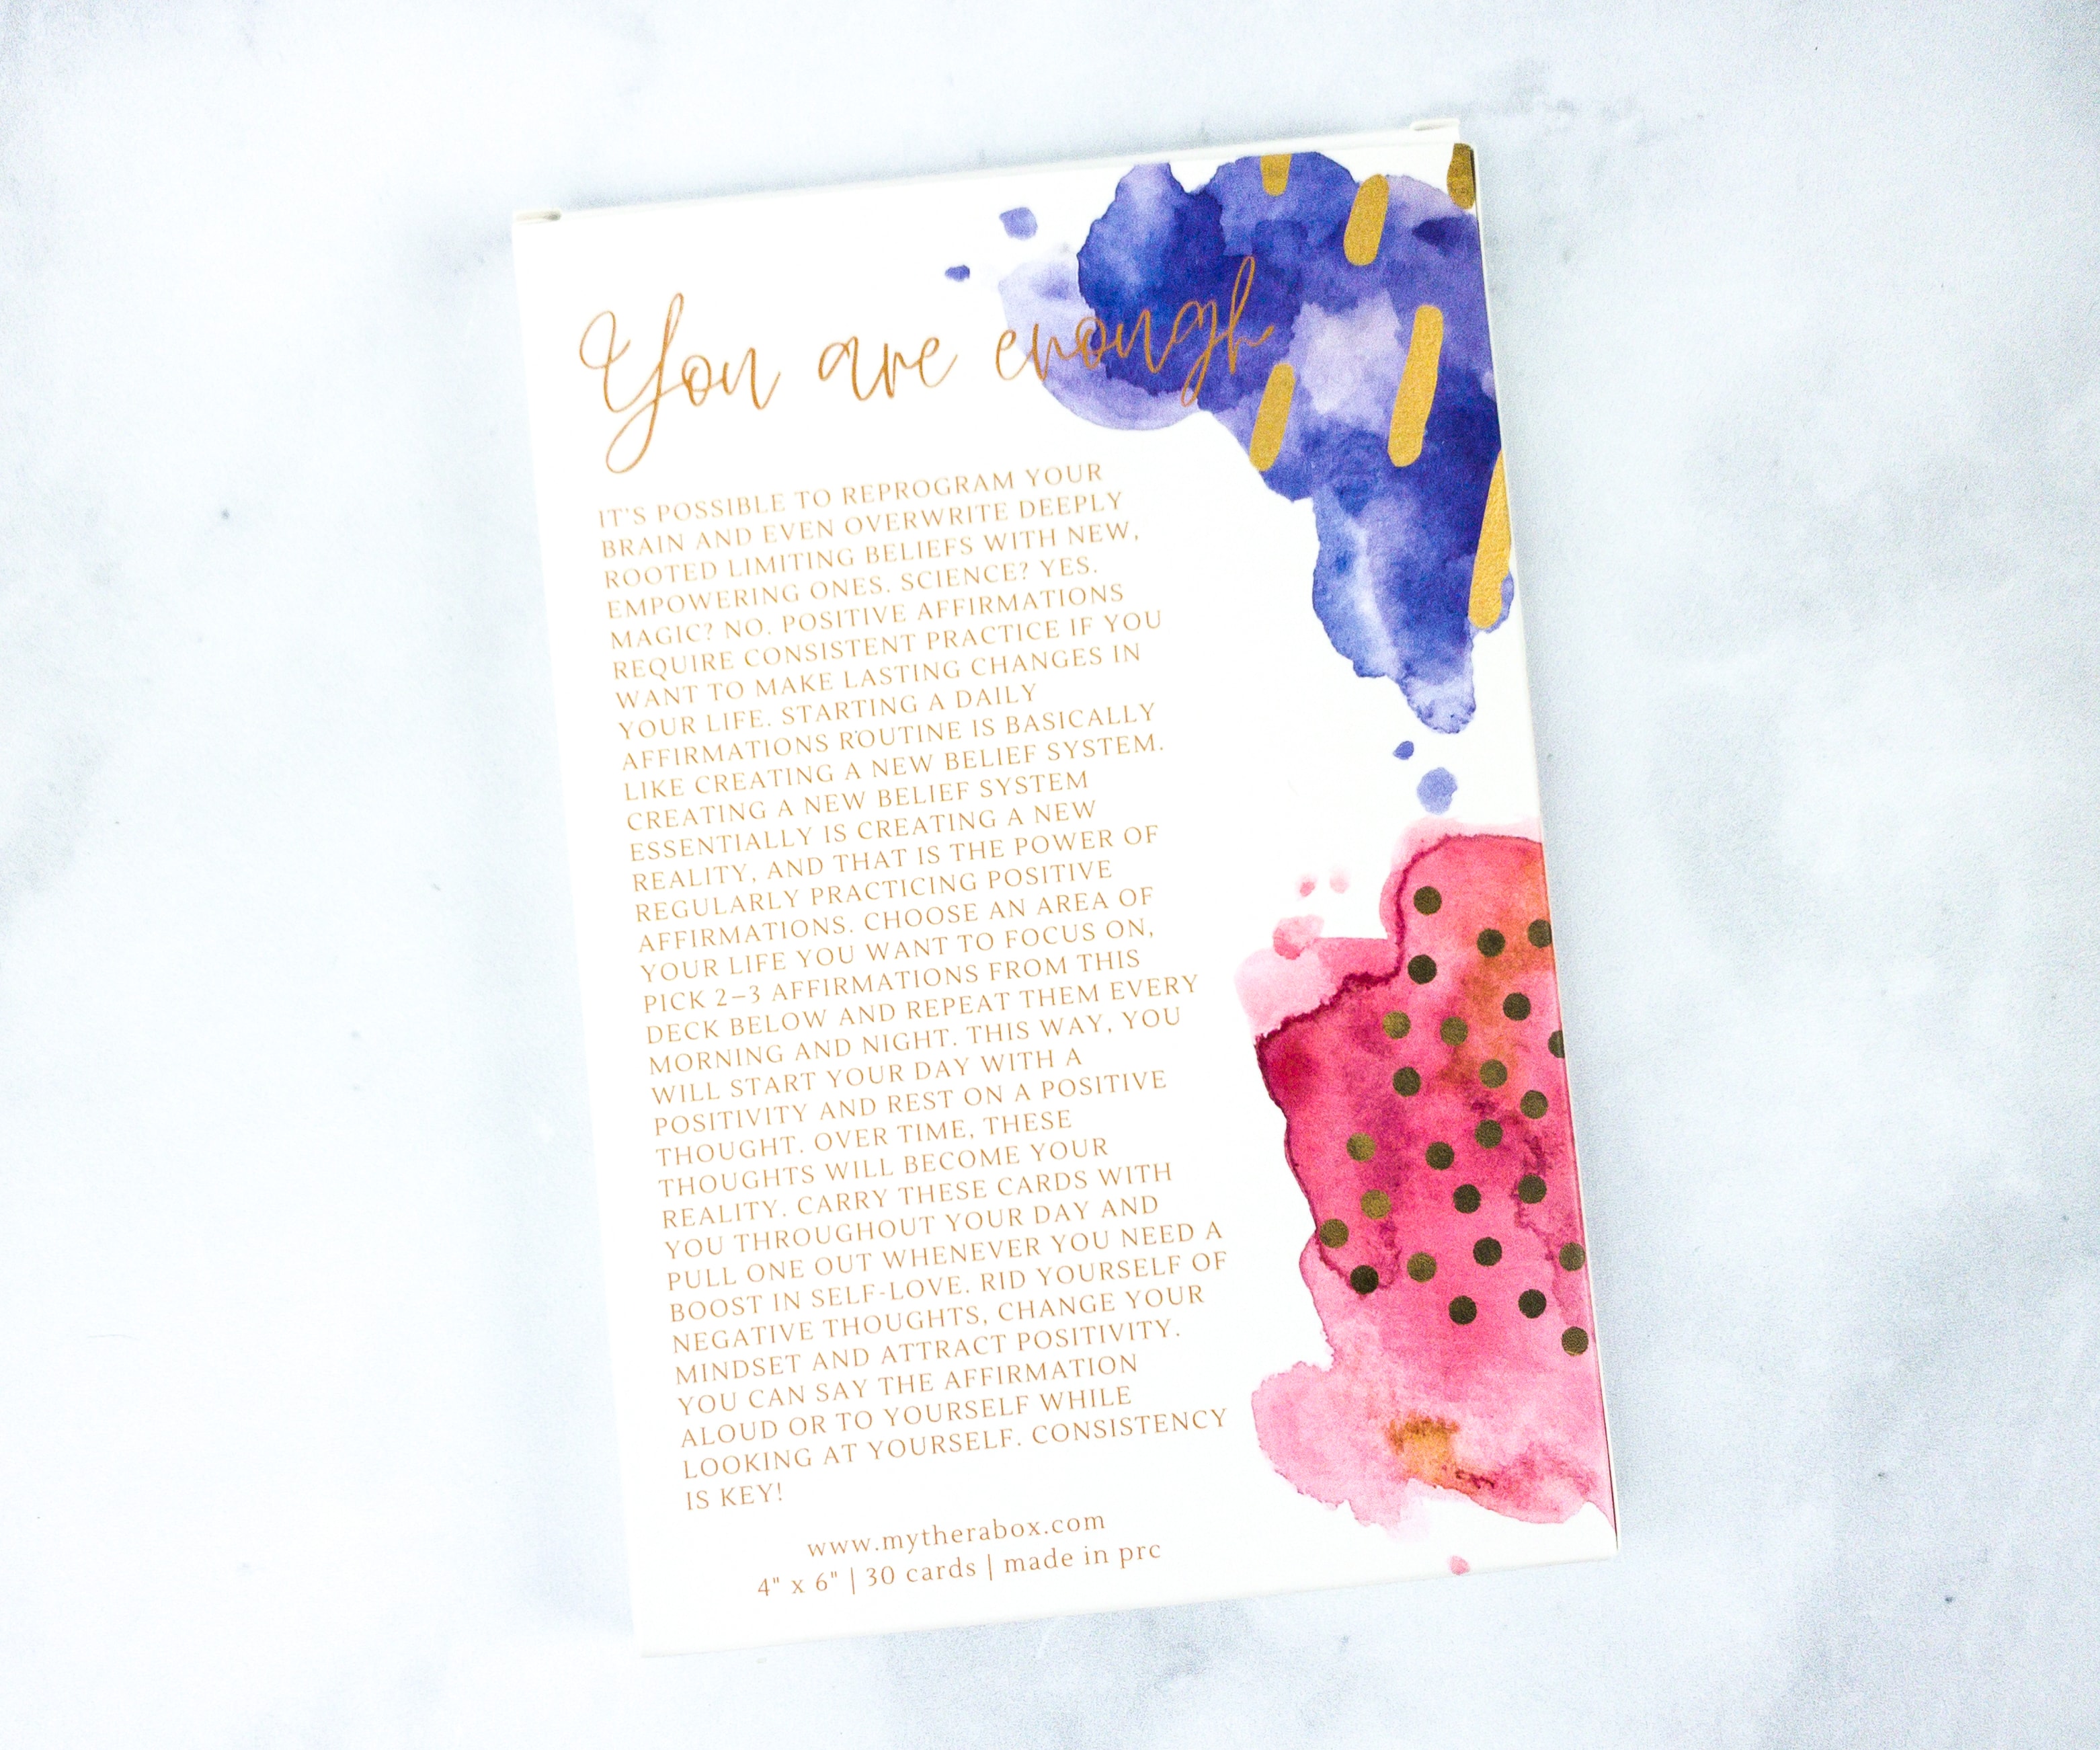 You are enough
IT'S POSSIBLE TO REPROGRAM YOUR
BRAIN AND EVEN OVERWRITE DEEPLY
ROOTED LIMITING BELIEFS WITH NEW,
EMPOWERING ONES. SCIENCE? YES.
MAGIC? NO. POSITIVE AFFIRMATIONS
REQUIRE CONSISTENT PRACTICE IF YOU
WANT TO MAKE LASTING CHANGES IN
YOUR LIFE. STARTING A DAILY
AFFIRMATIONS ROUTINE IS BASICALLY
LIKE CREATING A NEW BELIEF SYSTEM.
CREATING A NEW BELIEF SYSTEM
ESSENTIALLY IS CREATING A NEW
REALITY, AND THAT IS THE POWER OF
REGULARLY PRACTICING POSITIVE
AFFIRMATIONS. CHOOSE AN AREA OF
YOUR LIFE YOU WANT TO FOCUS ON,
PICK 2–3 AFFIRMATIONS FROM THIS
DECK BELOW AND REPEAT THEM EVERY
MORNING AND NIGHT. THIS WAY, YOU
WILL START YOUR DAY WITH A
POSITIVITY AND REST ON A POSITIVE
THOUGHT. OVER TIME, THESE
THOUGHTS WILL BECOME YOUR
REALITY. CARRY THESE CARDS WITH
YOU THROUGHOUT YOUR DAY AND
PULL ONE OUT WHENEVER YOU NEED A
BOOST IN SELF-LOVE. RID YOURSELF OF
NEGATIVE THOUGHTS, CHANGE YOUR
MINDSET AND ATTRACT POSITIVITY.
YOU CAN SAY THE AFFIRMATION
ALOUD OR TO YOURSELF WHILE
LOOKING AT YOURSELF. CONSISTENCY
IS KEY!
www.mytherabox.com
4" x 6" | 30 cards | made in prc